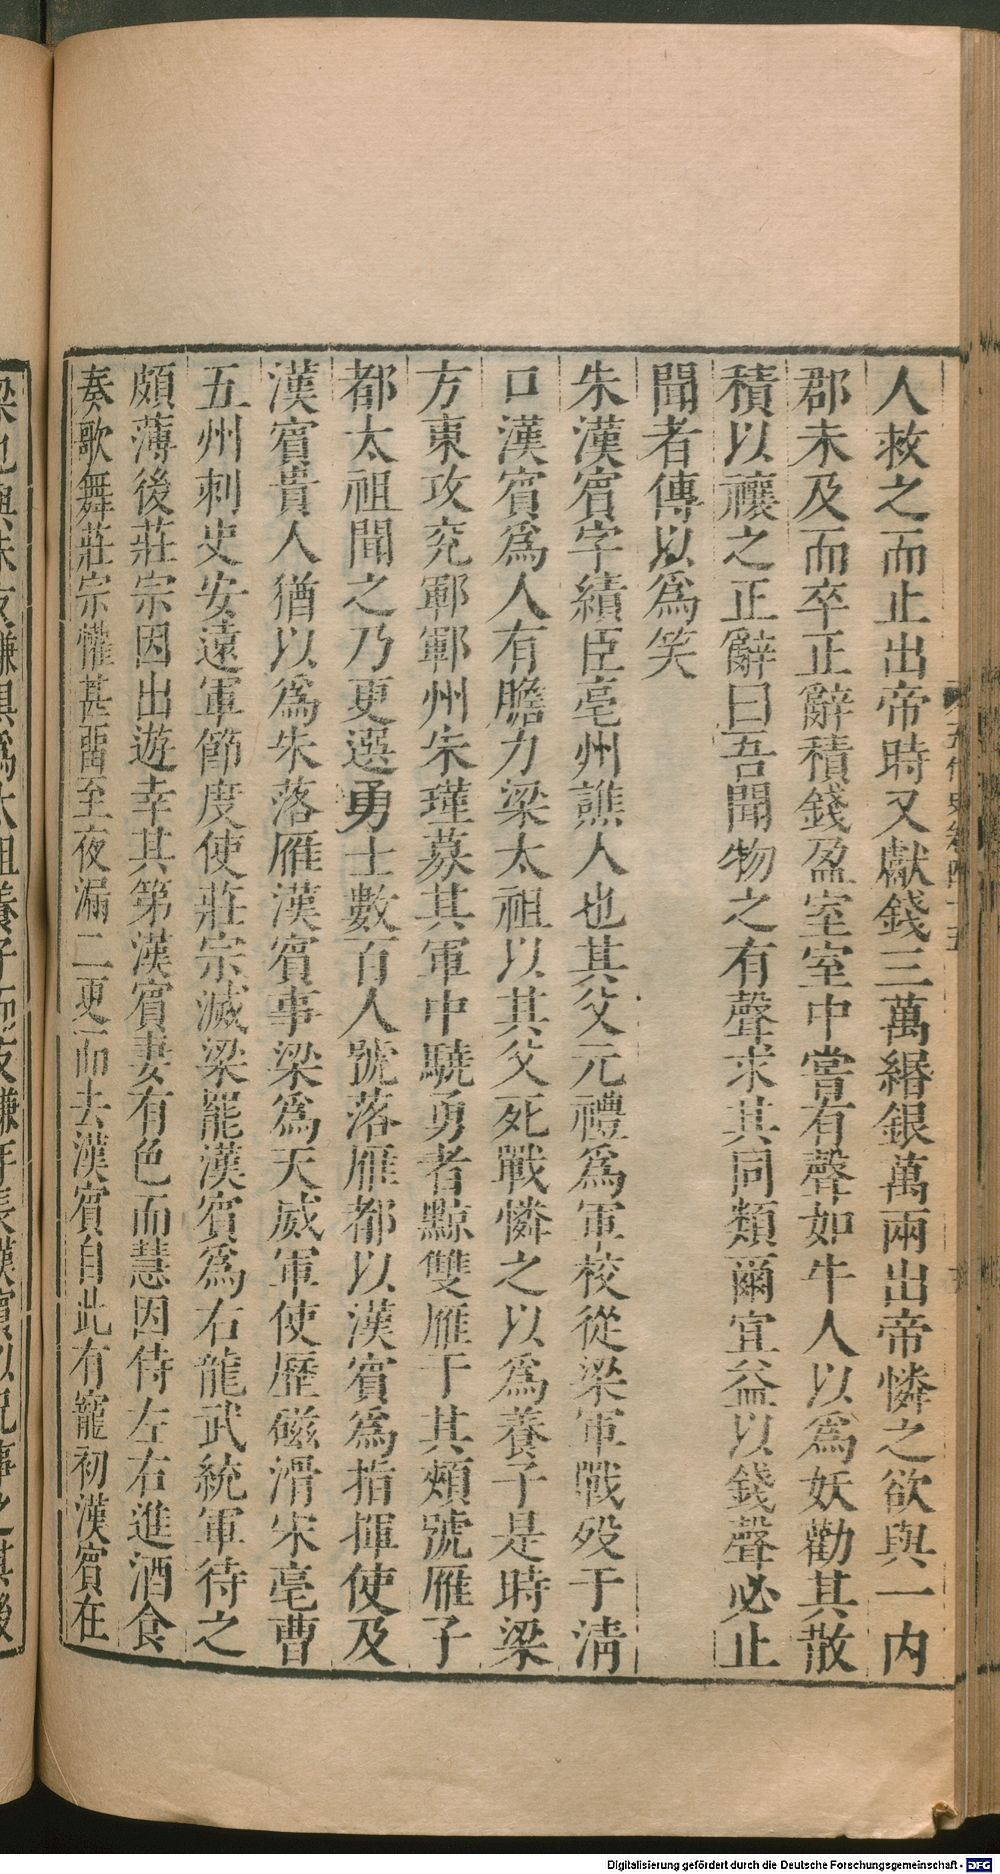 人救之而止出帝時又獻錢三萬緡銀萬兩出帝憐之欲與一内
郡未及而卒正辭積錢盈室室中嘗有聲如牛人以爲妖勸其散
積以禳之正辭曰吾聞物之有聲求其同類爾宜益以錢聲必止
聞者傳以爲笑
朱漢賓字績臣亳州譙人也其父元禮爲軍校從梁軍戰歿于淸
口漢賓爲人有膽力梁太祖以其父死戰憐之以爲養子是時梁
方東攻兖鄆鄆州朱瑾募其軍中驍勇者黥雙雁于其頰號雁子
都太祖聞之乃更選勇士數百人號落雁都以漢賓爲指揮使及
漢賓貴人猶以爲朱落雁漢賓事梁爲天威軍使歷磁滑宋亳曹
五州刺史安遠軍節度使莊宗滅梁罷漢賓爲右龍武統軍待之
頗薄後莊宗因出遊幸其第漢賓妻有色而慧因侍左右進酒食
奏歌舞莊宗懽甚留至夜漏二更而去漢賓自此有寵初漢賓在
Digitalisierung gefördert durch die Deutsche Forschungsgemeinschaft - DFG